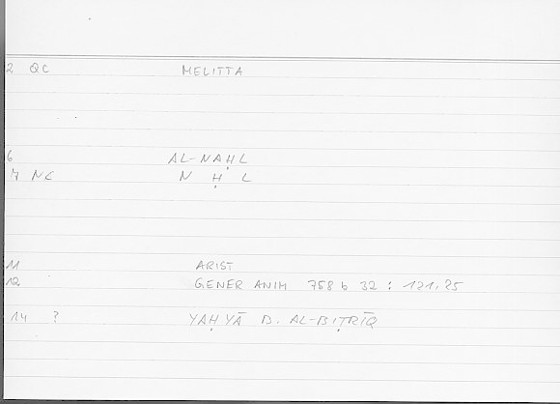 2 QC MELITTA
6 AL-NAḤL
7 NC N Ḥ L
11 ARIST
12 GENER ANIM 758 b 32 : 121.25
14 ? YAḤYĀ B. AL-BIṬRĪQ